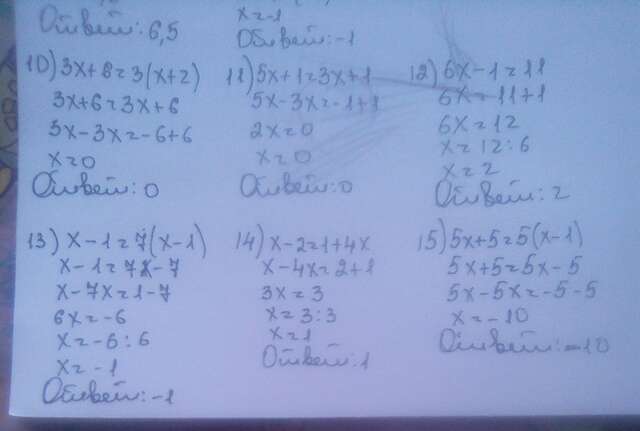 Ответ: 6,5
x=-1
Ответ: -1
10) 3x+6=3(x+2)
3x+6=3x+6
3x-3x=-6+6
x=0
Ответ: 0
11) 5x+1=3x+1
5x-3x=-1+1
2x=0
x=0
Ответ: 0
12) 6x-1=11
6x=11+1
6x=12
x=12:6
x=2
Ответ: 2
13) x-1=7(x-1)
x-1=7x-7
x-7x=1-7
6x=-6
x=-6:6
x=-1
Ответ: -1
14) x-2=1+4x
x-4x=2+1
3x=3
x=3:3
x=1
Ответ: 1
15) 5x+5=5(x-1)
5x+5=5x-5
5x-5x=-5-5
x=-10
Ответ: -10